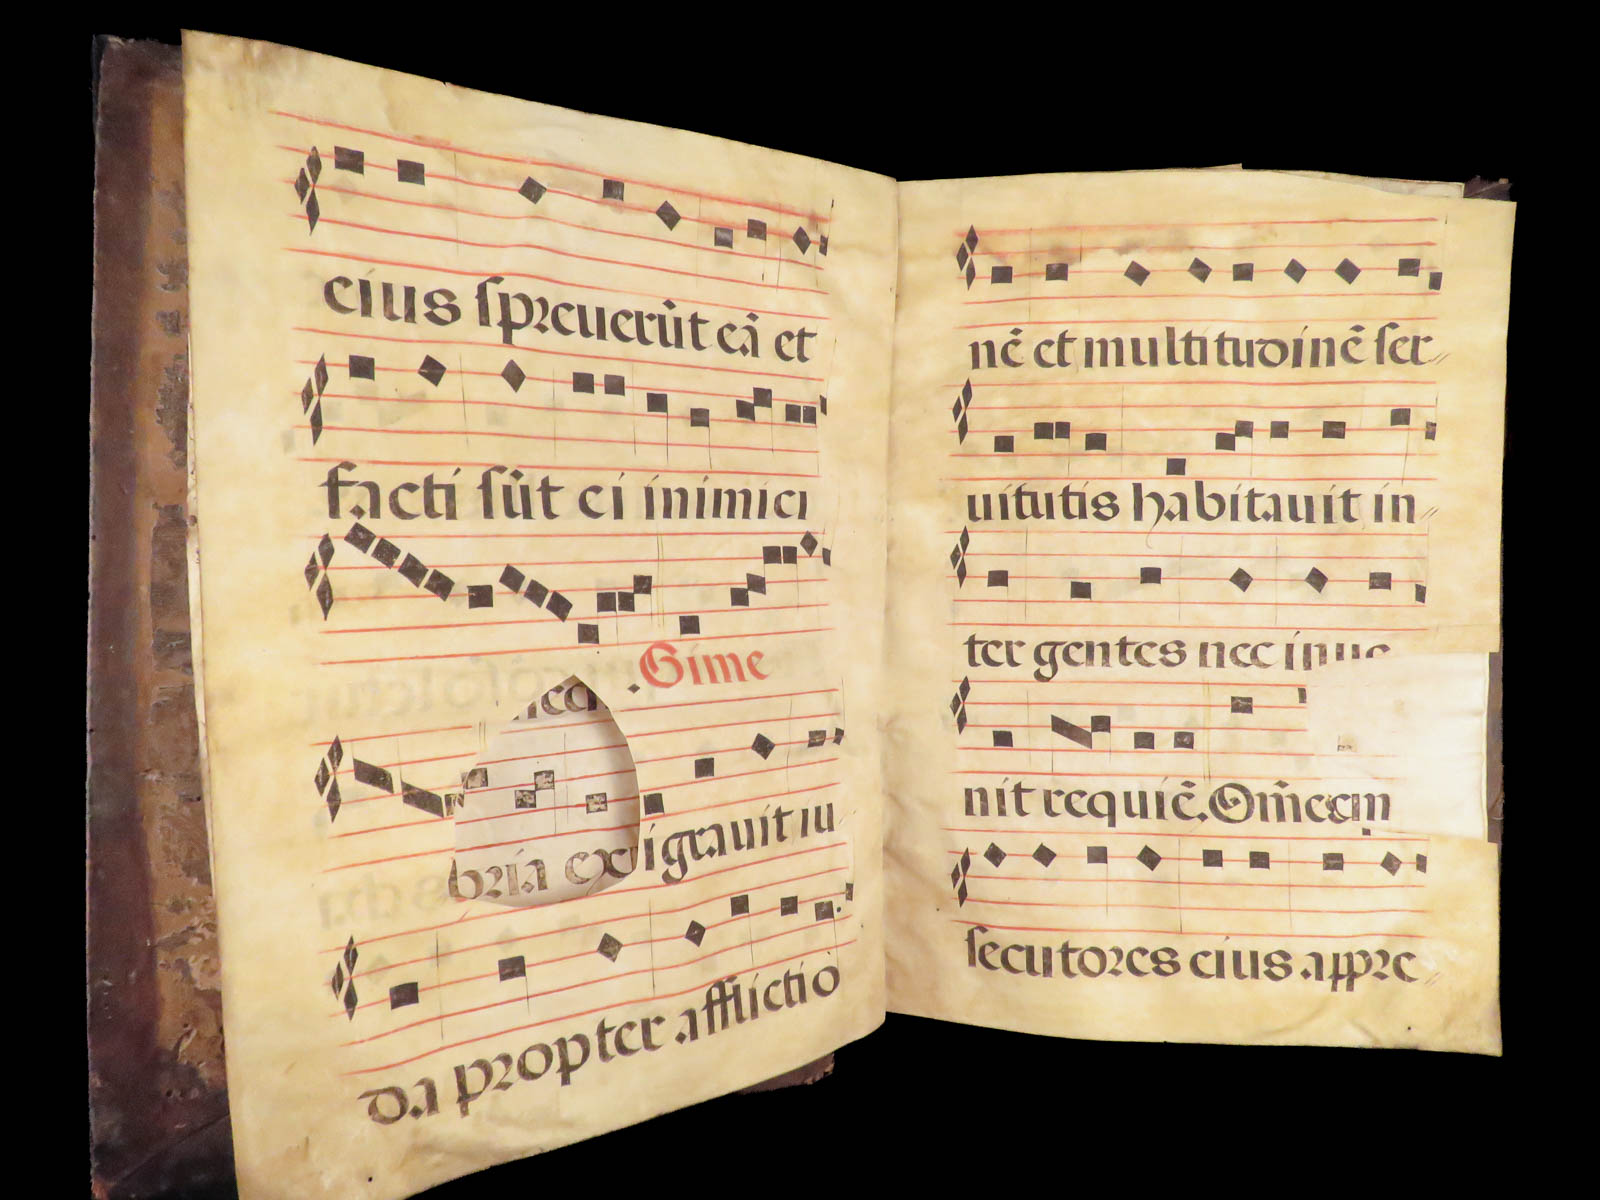 eius spreuerũt eã et
facti sũt ei inimici
Gime
bria ex
igrauit iu
da propter afflictiõ
nẽ et multitudinẽ ser〃
uitutis habitauit in〃
ter gentes nec inue
nit requiẽ. Om̃es
secutores eius appre〃